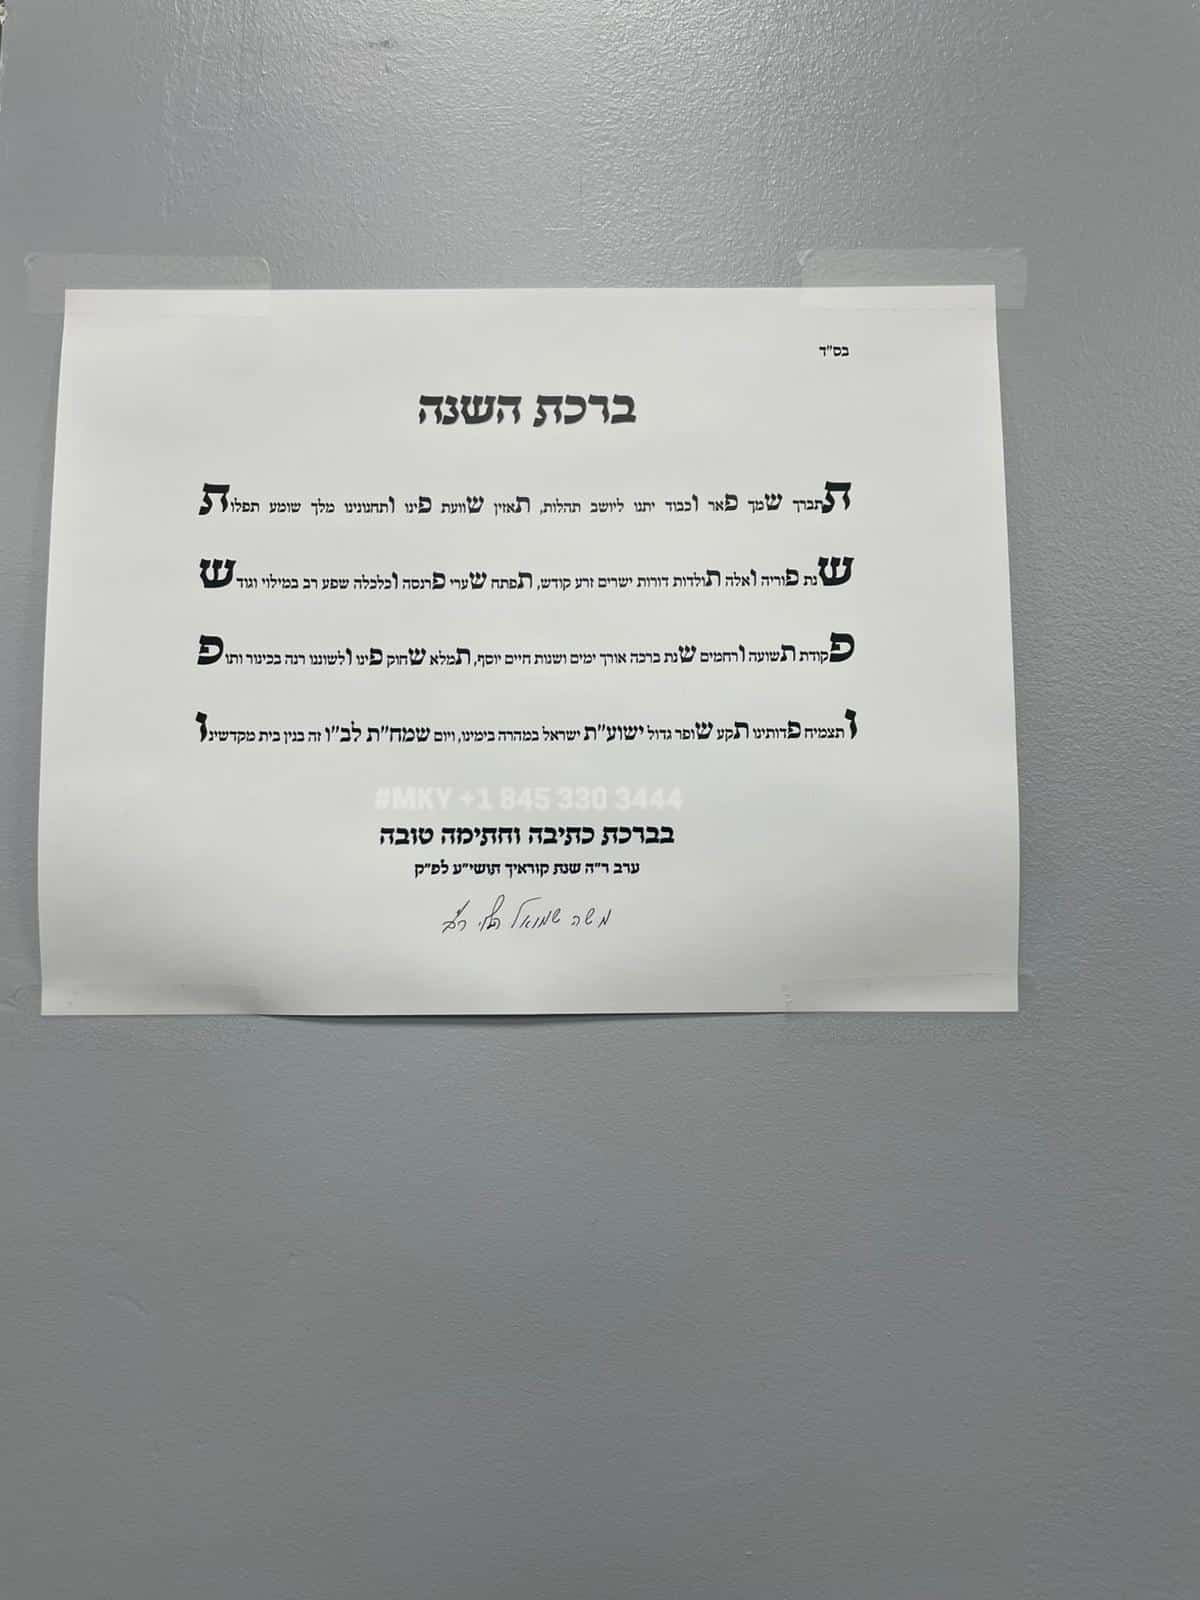 בס"ד
ברכת השנה
תתברך שמך פאר וכבוד יתנו ליושב תהלות, תאזין שוועת פינו ותחנונינו מלך שומע תפלות
שנת פוריה ואלה תולדות דורות ישרים זרע קודש, תפתח שערי פרנסה וכלכלה שפע רב במילוי וגודש
פקודת תשועה ורחמים שנת ברכה אורך ימים ושנות חיים יוסף, תמלא שחוק פינו ולשוננו רנה בכינור ותופ
ותצמיח פדותינו תקע שופר גדול ישוע"ת ישראל במהרה בימינו, ויום שמח"ת לב"ו זה בנין בית מקדשינו
#MKY +1 845 330 3444
בברכת כתיבה וחתימה טובה
ערב ר"ה שנת קוראיך תושי"ע לפ"ק
משה שמואל